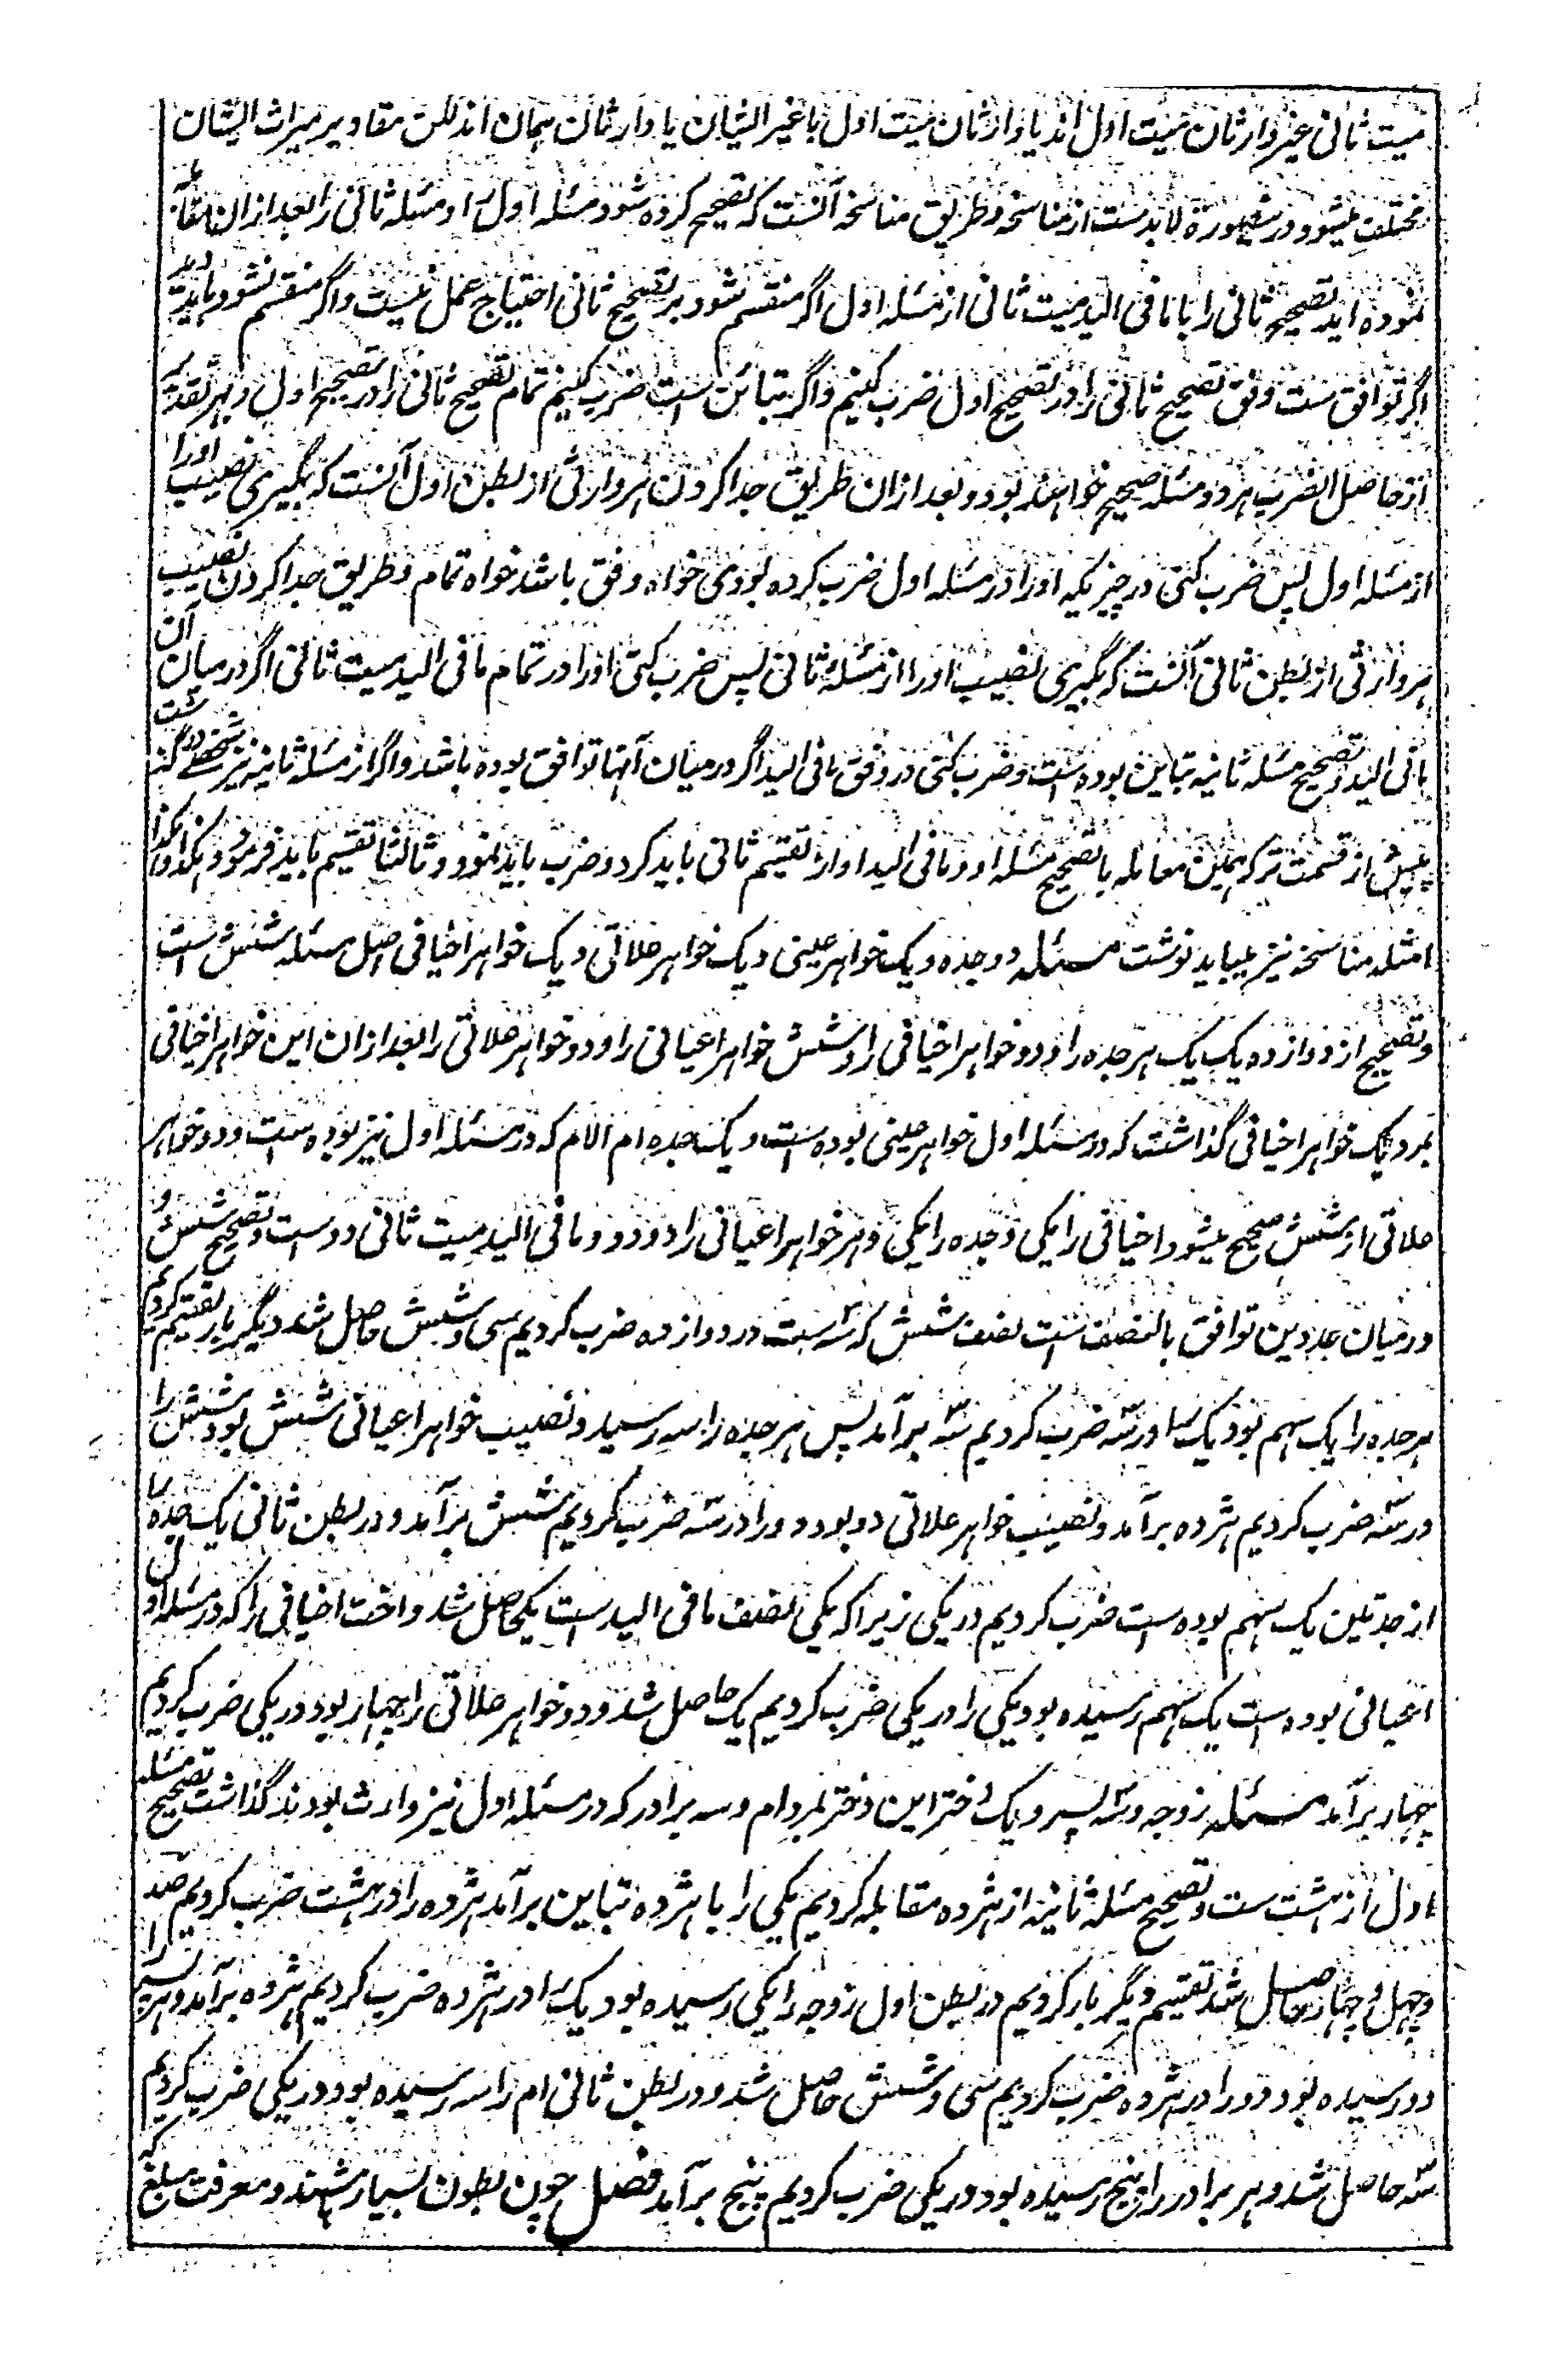 میت ثانی غیر وارثان میت اول اند یا وارثان میت اول با غیر ایشان یا وارثان همان اند لکن مقادیر میراث ایشان
مختلف میشود درینصورة لابدست از مناسخه و طریق مناسخه آنست که تصحیح کرده شود مسئله اول را و مسئله ثانی را بعد ازان مقابله
نموده آید تصحیح ثانی را با ما فی الید میت ثانی از مسئله اول اگر منقسم شود بر تصحیح ثانی احتیاج عمل نیست و اگر منقسم نشود باید دید
اگر توافق ست وفق تصحیح ثانی را در تصحیح اول ضرب کنیم و اگر تباین ست ضرب کنیم تمام تصحیح ثانی را در تصحیح اول و بهر تقدیر
از حاصل الضرب هر دو مسئله صحیح خواهند بود و بعد ازان طریق جدا کردن هر وارثی از بطن اول آنست که بگیری نصیب او را
از مسئله اول پس ضرب کنی در چیزیکه او را در مسئله اول ضرب کرده بودی خواه وفق باشد خواه تمام و طریق جدا کردن نصیب
هر وارثی از بطن ثانی آنست که بگیری نصیب او را از مسئله ثانی پس ضرب کنی او را در تمام ما فی الید میت ثانی اگر درمیان آن
ما فی الید و تصحیح مسئله ثانیه تباین بوده است و ضرب کنی در وفق ما فی الید اگر درمیان آنها توافق بوده باشد و اگر از مسئله ثانیه نیز شخصے درگذشت
پیش از قسمت ترکه همین معامله با تصحیح مسئله او و ما فی الید او از تقسیم ثانی باید کرد و ضرب باید نمود و ثالثا تقسیم باید فرمود هکذا و هکذا
امثله مناسخه نیز میباید نوشت مسئله دو جده و یک خواهر عینی و یک خواهر علاتی و یک خواهر اخیافی اصل مسئله شش است
و تصحیح از دوازده یک یک هر جده را و دو خواهر اخیافی را و شش خواهر اعیانی را و دو خواهر علاتی را بعد ازان این خواهر اخیافی
بمرد یک خواهر اخیافی گذاشت که در مسئله اول خواهر عینی بوده است و یک جده ام الام که در مسئله اول نیز بوده است و دو خواهر
علاتی از شش صحیح میشود اخیافی را یکی و جده را یکی و هر خواهر اعیانی را دو دو و ما فی الید میت ثانی دو ست و تصحیح شش و
درمیان عددین توافق بالنصف ست نصف شش که سه ست در دوازده ضرب کردیم سی و شش حاصل شد دیگر بار تقسیم کردیم
هر جده را یک سهم بود یک را در سه ضرب کردیم سه برآمد پس هر جده را سه رسید و نصیب خواهر اعیانی شش بود شش را
در سه ضرب کردیم هژده برآمد و نصیب خواهر علاتی دو بود دو را در سه ضرب کردیم شش برآمد و در بطن ثانی یک جده را
از جدتین یک سهم بوده است ضرب کردیم در یکی زیرا که یکی نصف ما فی الید ست یک حاصل شد و اخت اخیافی را که در مسئله اولی
اعیانی بوده است یک سهم رسیده بود یکی را در یکی ضرب کردیم یک حاصل شد و دو خواهر علاتی را چهار بود در یکی ضرب کردیم
چهار برآمد مسئله زوجه و سه پسر و یک دختر این دختر بمرد ام و سه برادر که در مسئله اول نیز وارث بودند گذاشت تصحیح مسئله
اول از هشت ست و تصحیح مسئله ثانیه از هژده مقابله کردیم یکی را با هژده تباین برآمد هژده را در هشت ضرب کردیم صد
و چهل و چهار حاصل شد تقسیم دیگر بار کردیم در بطن اول زوجه را یکی رسیده بود یک را در هژده ضرب کردیم هژده برآمد و هر پسر را
دو رسیده بود دو را در هژده ضرب کردیم سی و شش حاصل شد و در بطن ثانی ام را سه رسیده بود در یکی ضرب کردیم
سه حاصل شد و هر برادر را پنج رسیده بود در یکی ضرب کردیم پنج برآمد فصل چون بطون بسیار شوند و معرفت مبلغ که